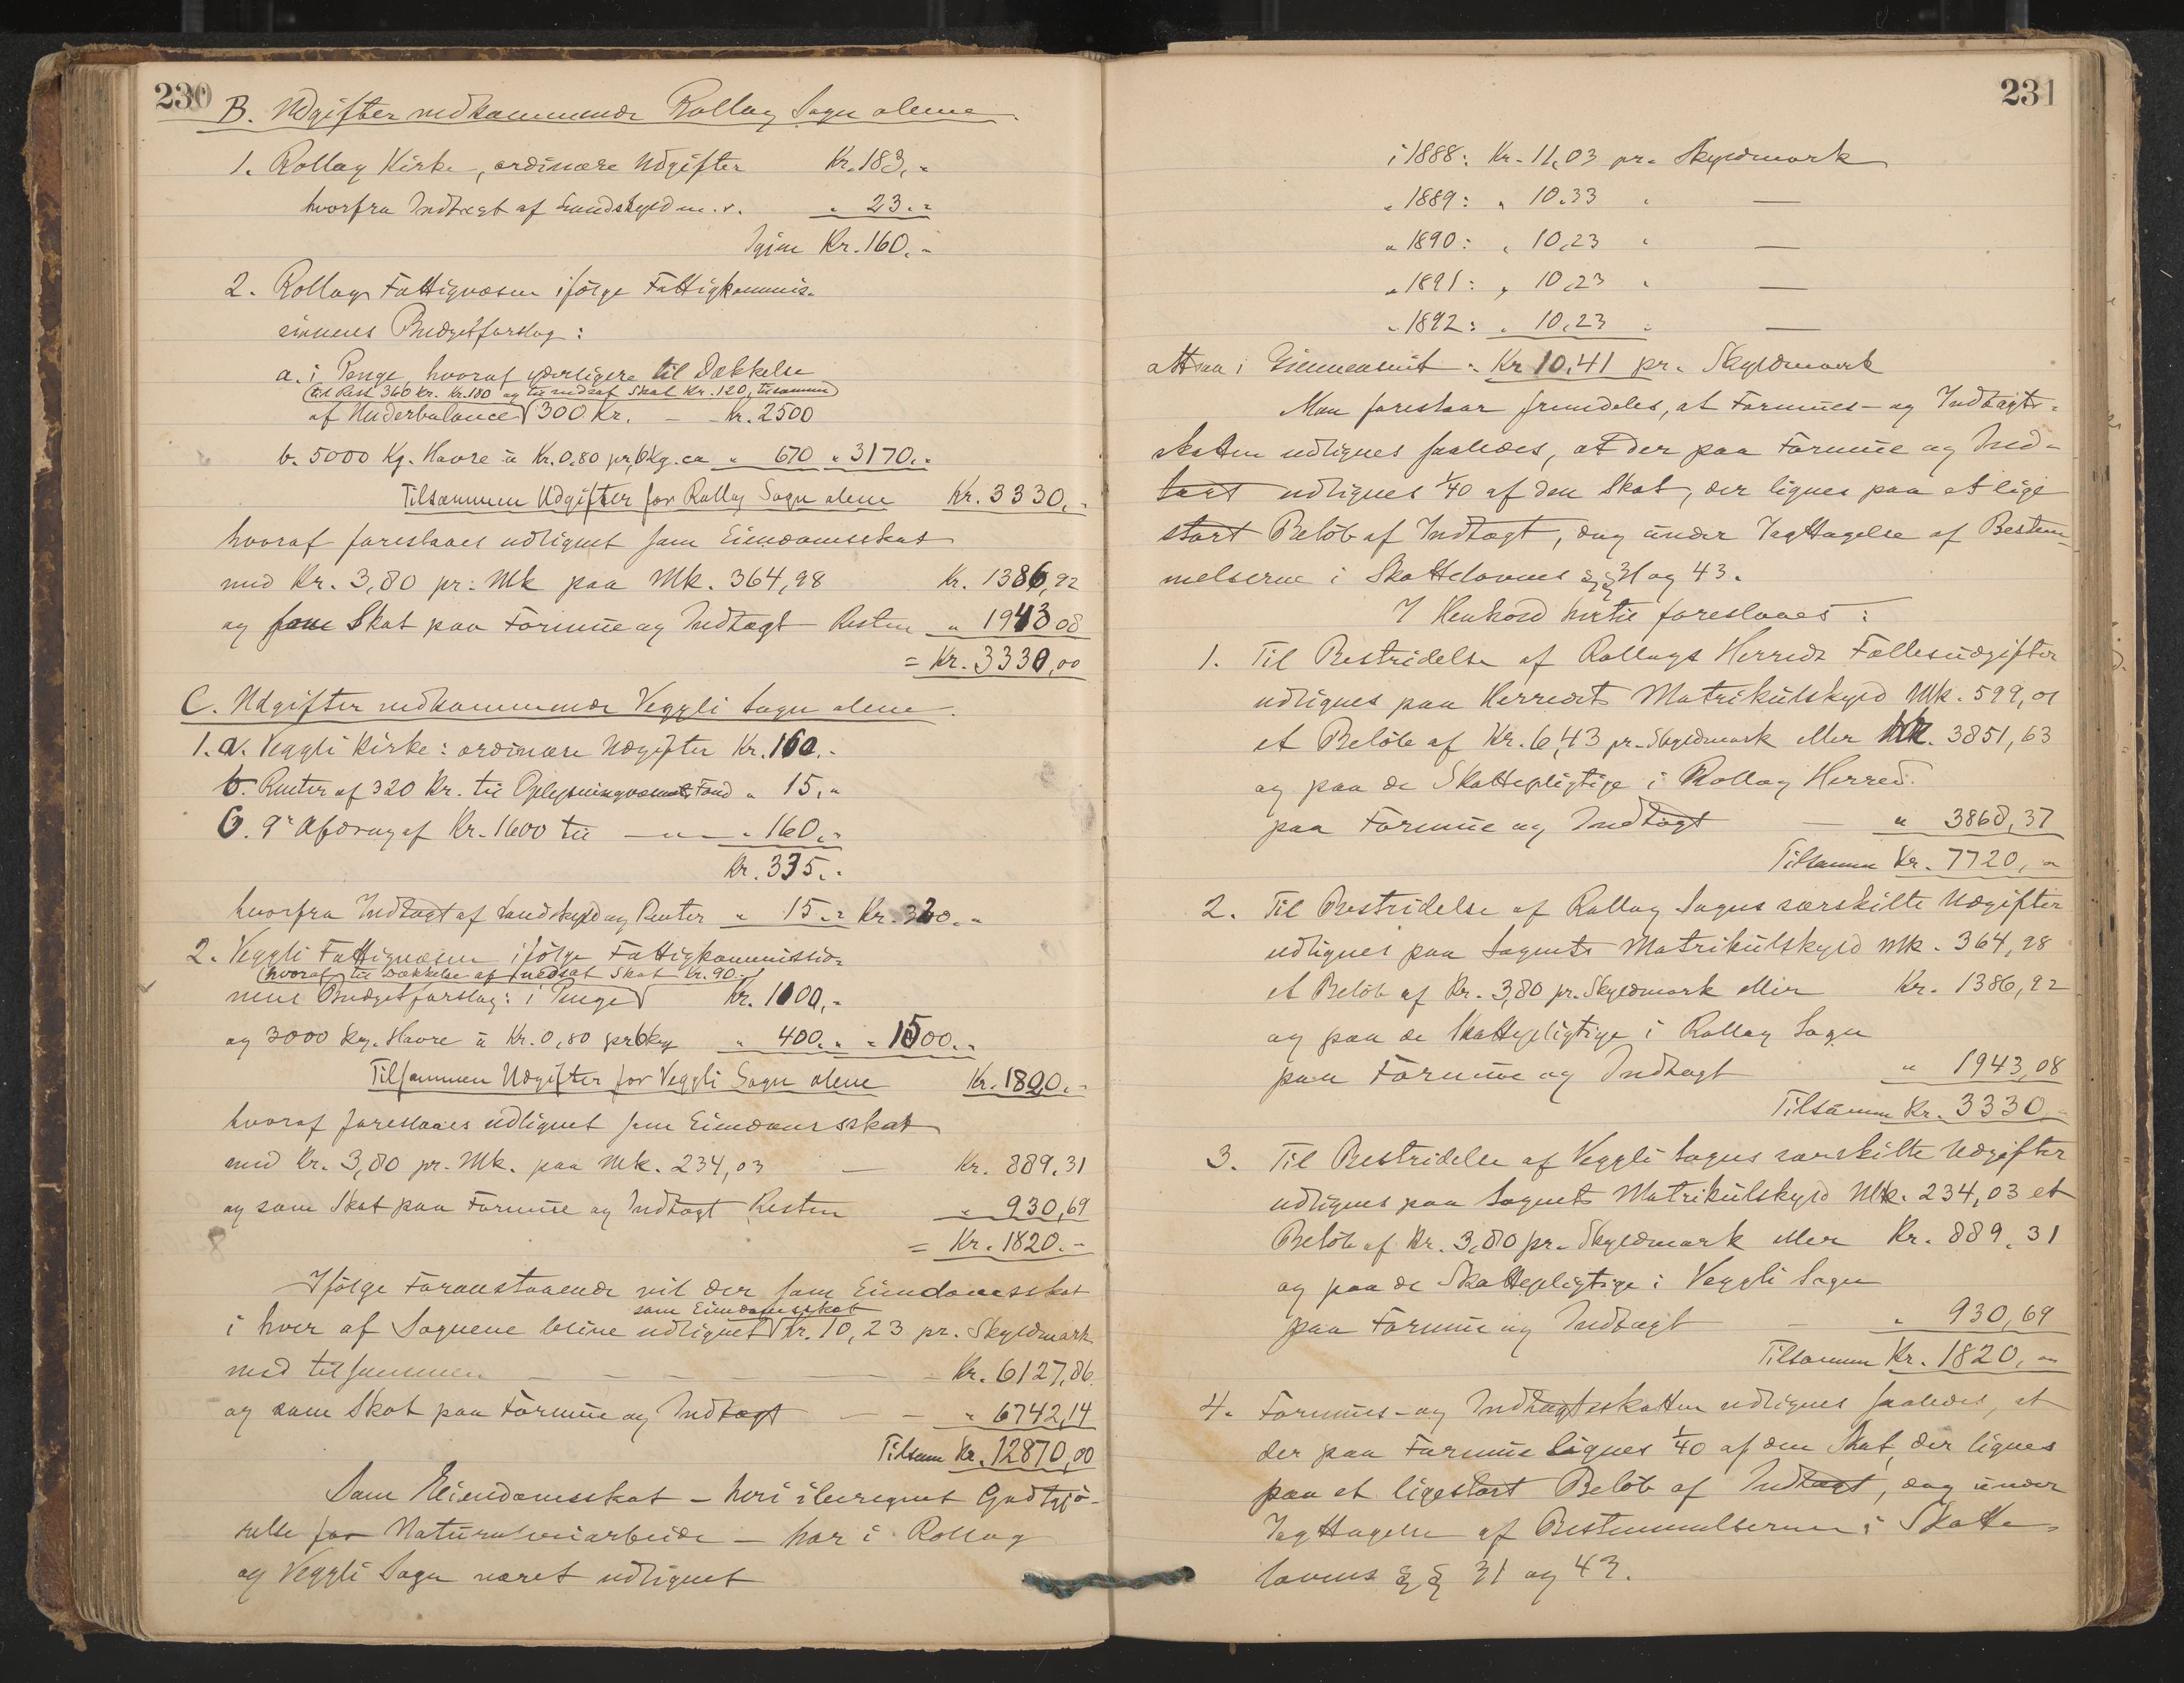 230
B. Udgifter vedkommende Rollag Sogn alene.
1. Rollag Kirke, ordinære Udgifter Kr. 183,-
hvorfra Indtægt af Landskyld m. v. " 23.-
Igjen Kr. 160.-
2. Rollags Fattigvæsen ifølge Fattigkommis-
sionens Budgetforslag:
a. i Penge, hvoraf yderligere til Dækkelse
(til Rest 360 kr. Kr. 180 og til nedsat Skat Kr. 120, tilsammen)
af Underbalance 300 Kr. — - Kr. 2500
b. 5000 Kg. Havre à Kr. 0,80 pr. 6 Kg. ca " 670 " 3170.-
Tilsammen Udgifter for Rollag Sogn alene Kr. 3330.-
hvoraf foreslaaes udlignet som Eiendomsskat
med Kr. 3,80 pr: Mk paa Mk. 364,98 Kr. 1386,92
og som Skat paa Formue og Indtægt Resten " 1943 08
= Kr. 3330,00
C. Udgifter vedkommende Veggli Sogn alene.
1. a. Veggli Kirke: ordinære Udgifter Kr. 160.-
b. Renter af 320 Kr. til Oplysningvæsenets Fond " 15,-
c. 9de Afdrag af Kr. 1600 til — " — " 160.-
Kr. 335.-
hvorfra Indtægt af Landskyld og Renter " 15.- Kr. 320.-
2. Veggli Fattigvæsen ifølge Fattigkommissio-
(hvoraf til Dækkelse af nedsat Skat Kr. 90.-)
nens Budgetforslag: i Penge Kr. 1100,-
og 3000 kg. Havre à Kr. 0,80 pr 6 kg " 400.- " 1500.-
Tilsammen Udgifter for Veggli Sogn alene Kr. 1820.-
hvoraf foreslaaes udlignet som Eiendomsskat
med Kr. 3,80 pr. Mk. paa Mk. 234,03 — Kr. 889.31
og som Skat paa Formue og Indtægt Resten " 930,69
= Kr. 1820.-
Ifølge Foranstaaende vil der som Eiendomsskat
som Eiendomsskat
i hver af Sognene blive udlignet Kr. 10,23 pr. Skyldmark
med tilsammen — — — — Kr. 6127,86.
og som Skat paa Formue og Indtægt — - " 6742,14
Tilsam Kr. 12870,00
Som Eiendomsskat – heri iberegnet Godtgjø-
relse for Naturalveiarbeide – har i Rollag
og Veggli Sogn været udlignet
231
i 1888: Kr. 11,03 pr. Skyldmark
" 1889: " 10.33 " —
" 1890: " 10,23 " —
" 1891: " 10,23 " —
" 1892: " 10,23 " —
altsaa i Giennemsnit - Kr 10.41 pr. Skyldmark
Man foreslaar fremdeles, at Formues- og Indtægts-
skatten udlignes saaledes, at der paa Formue og Ind-
tægt udlignes 1/40 af den Skat, der lignes paa et lige
stort Beløb af Indtægt, dog under Iagttagelse af Bestem-
melserne i Skattelovens §§ 31 og 43.
I Henhold hertil foreslaaes:
1. Til Bestridelse af Rollags Herreds Fællesudgifter
udlignes paa Herredets Matrikulskyld Mk. 599,01
et Beløb af Kr. 6,43 pr. Skyldmark eller Kr. 3851,63
og paa de Skattepligtige i Rollag Herred
paa Formue og Indtægt — " 3868,37
Tilsammen Kr. 7720,-
2. Til Bestridelse af Rollag Sogns særskilte Udgifter
udlignes paa Sognets Matrikulskyld Mk. 364,98
et Beløb af Kr. 3,80 pr. Skyldmark eller Kr. 1386,92
og paa de Skattepligtige i Rollag Sogn
paa Formue og Indtægt " 1943,08
Tilsammen Kr. 3330.-
3. Til Bestridelse af Veggli Sogns særskilte Udgifter
udlignes paa Sognets Matrikulskyld Mk. 234,03 et
Beløb af Kr. 3,80 pr. Skyldmark eller Kr. 889,31
og paa de Skattepligtige i Veggli Sogn
paa Formue og Indtægt - " 930,69
Tilsammen Kr. 1820,-
4. Formues- og Indtægtsskatten udlignes saaledes, at
der paa Formue lignes 1/40 af den Skat, der lignes
paa et ligestort Beløb af Indtægt, dog under
Iagttagelse af Bestemmelserne i Skatte-
lovens §§ 31 og 43.